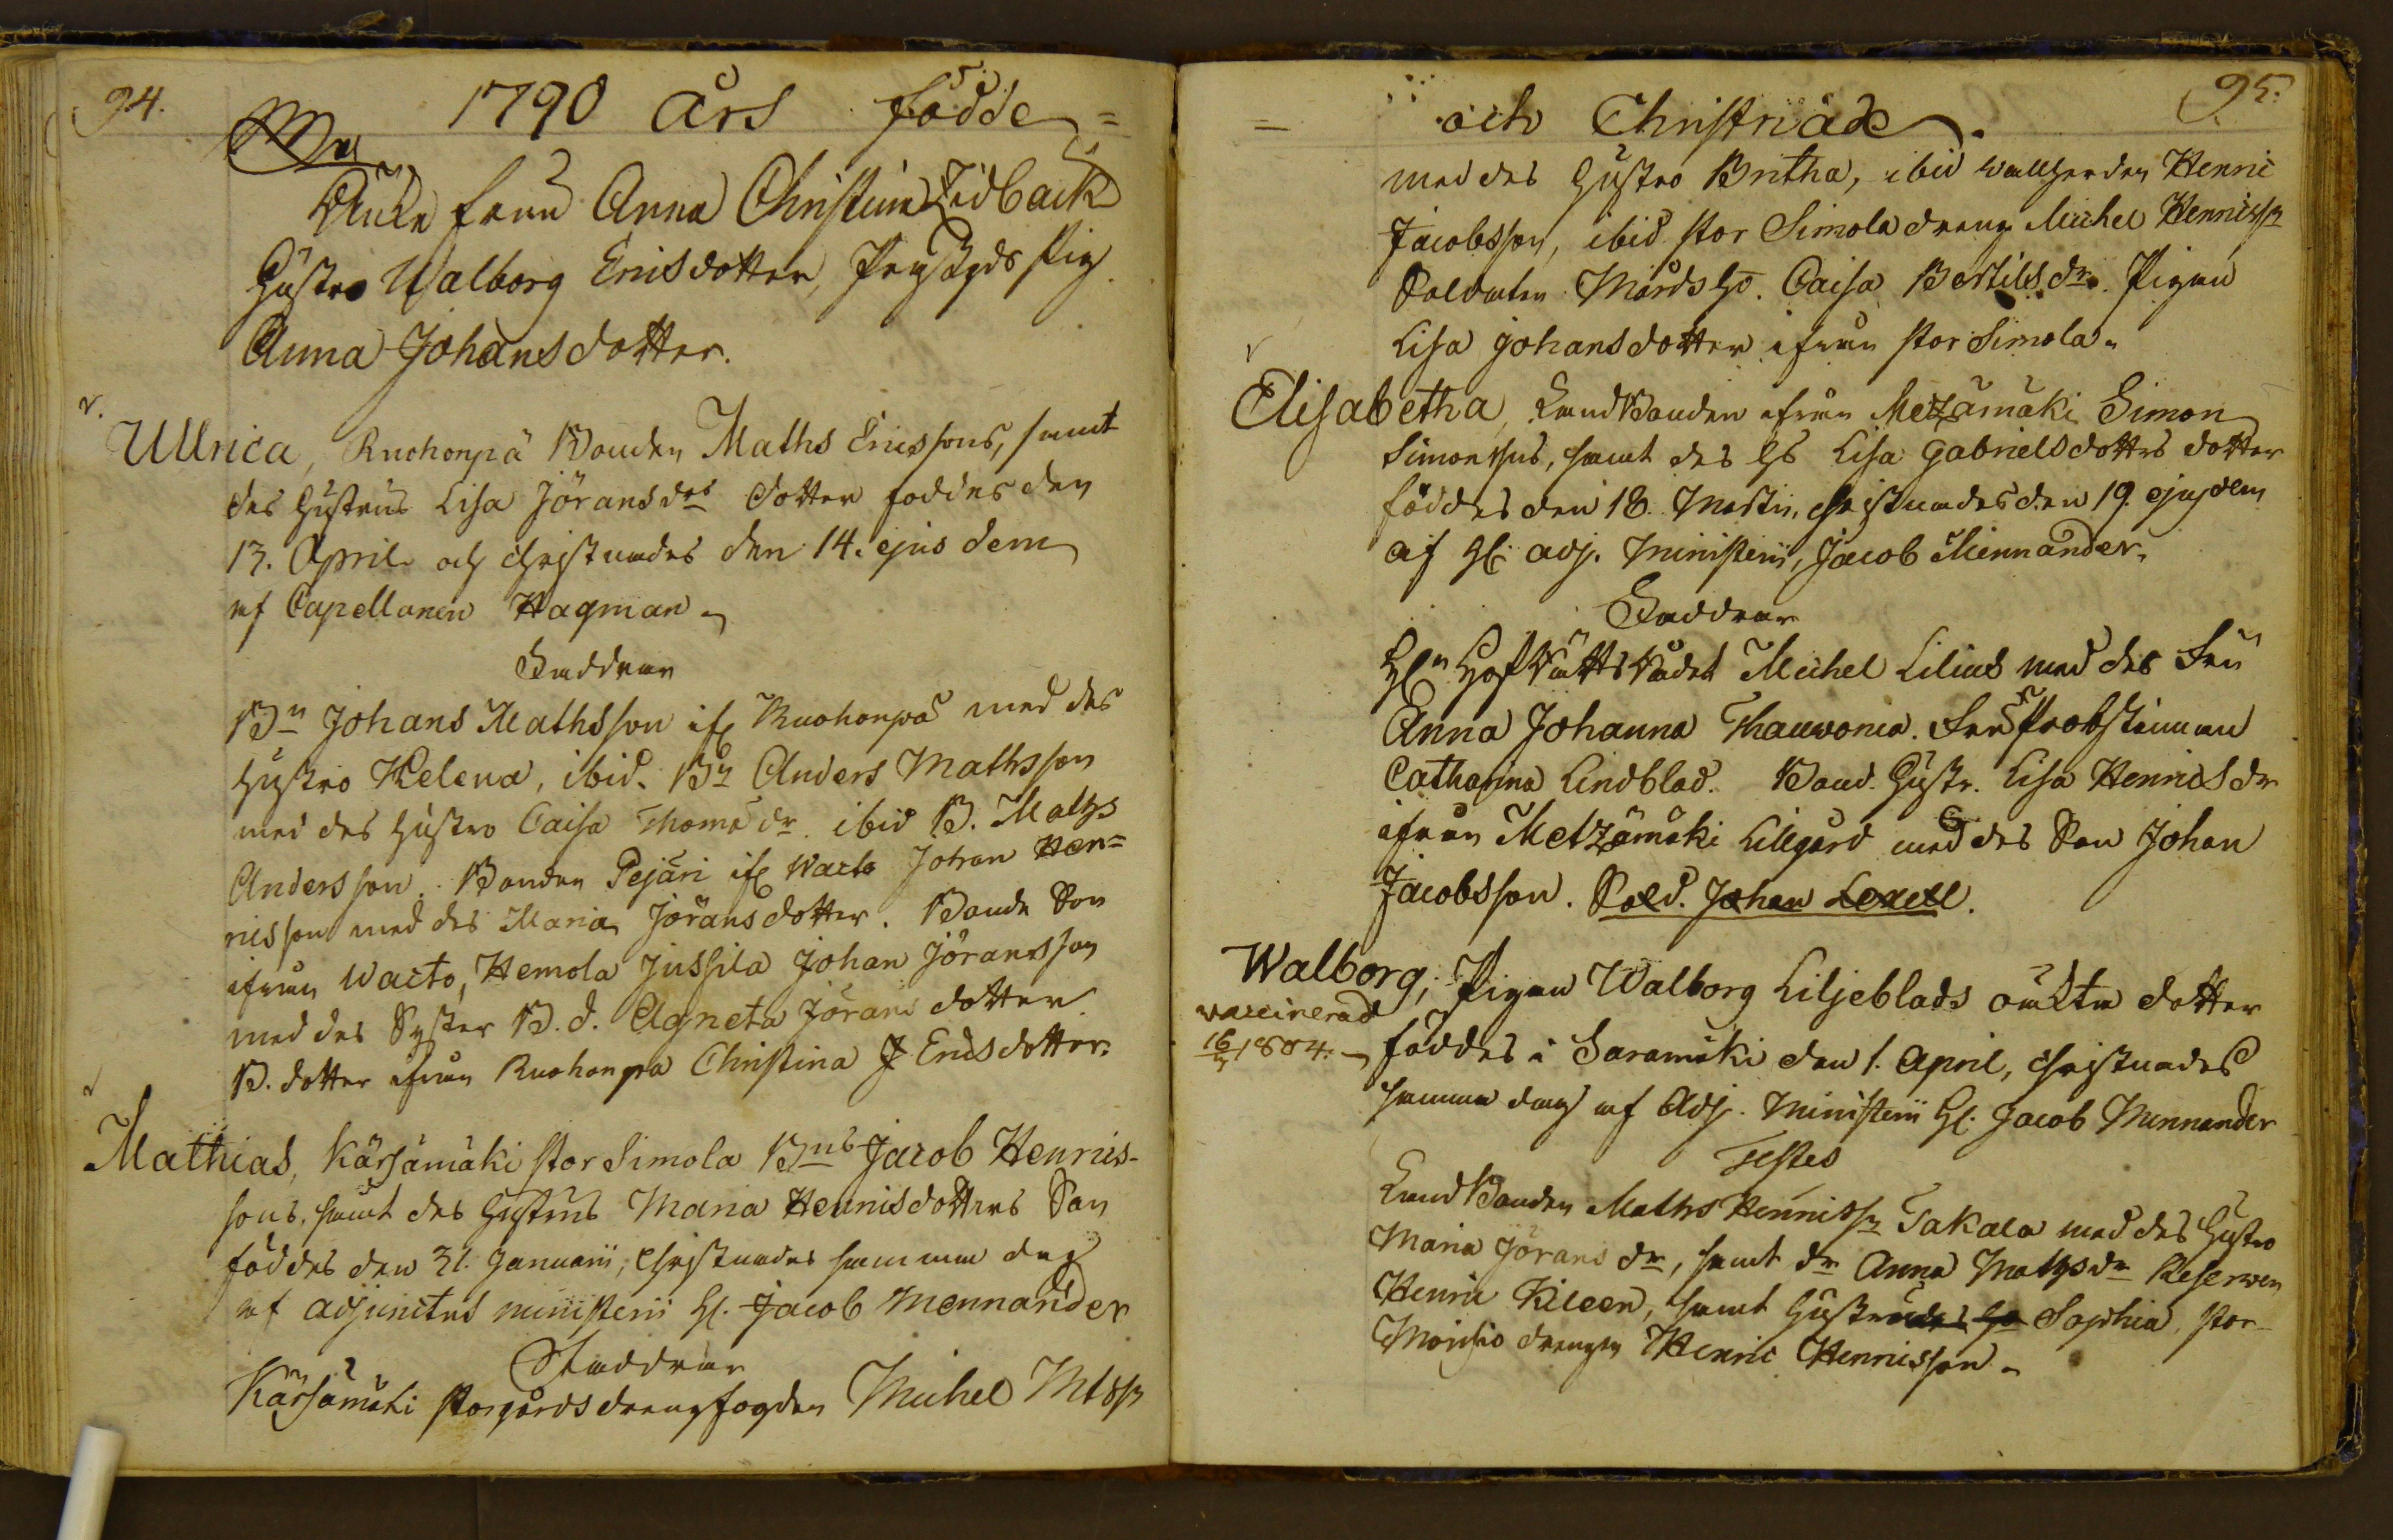 94.
1790 Års födde =
Enkan frun Anna Christina Zidbäck
Hustro Walborg Ericsdotter, Pigan
Anna Johansdotter.
v.
Ullrica, Ruohonpä Bonden Maths Ericssons, samt
des Hustrus Lisa Jöransdrs dotter föddes den
13. April och christnades den 14. ejusdem
af Capellanen Hagman
Faddrar
Bn Johans Mathsson ifr Ruohonpä med des
Hustro Helena, ibid. Bn Anders Mathsson
med des Hustro Caisa Thomædr ibid B. Maths
Andersson. Bonden Pejari ifr Waito Johan Hen=
ricsson med des Maria Jöransdotter. Bonde Son
ifrån Waito, Hemola Jussila Johan Jöransson
med des Syster B.d. Agneta Jöransdotter
B. dotter ifrån Ruohonpä Christina Ericsdotter.
Mathias, Kärsämäki stor Simola Bns Jacob Henrics-
sons, samt des Hustrus Maria Henricsdotters Son
föddes den 31. Januarii, Christnades samma dag
af adjunctus ministerii H. Jacob Mennander
Faddrar
Kärsämäki storgårds drengfogden Michel Mtssn
= och Christnade.
95.
med des Hustro Britha, ibid vallherden Henric
Jacobsson, ibid stor Simola dreng Michel Henricssn
Soldaten Mårds Ho. Caisa Bertilsdr. Pigan
Lisa Johansdotter ifrån stor Simola.
v
Elisabetha, LandBonden ifrån Metzämäki Simon
Simonssns, samt des Hs Lisa Gabrielsdotters dotter
föddes den 18. Martii, christnades den 19. ejusdem
af H. adj. Ministerii, Jacob Mennander.
Faddrar
Hn HofRättsRådet Michel Lilius med des Fru
Anna Johanna Thauvonia. Fru Probstinnan
Catharina Lindblad. Bond. Hustr. Lisa Henricsdr
ifrån Metzämäki Lillgård med des Son Johan
Jacobsson. Sold. Johan Lexell.
Walborg, Pigan Walborg Liljeblads oäkta dotter
vaccinerad
16/7 1804.
föddes i Saramäki den 1. April, christnades
samma dag af Adj. Ministerii H. Jacob Mennander
Testes
LandBonden Maths Henricssn Takala med des Hustro
Maria Jörans dr, samt dr Anna Mathsdr Reserven
Henric Kileen, samt Hustro Sophia, stor-
Moisio drengen Henric Henricsson.